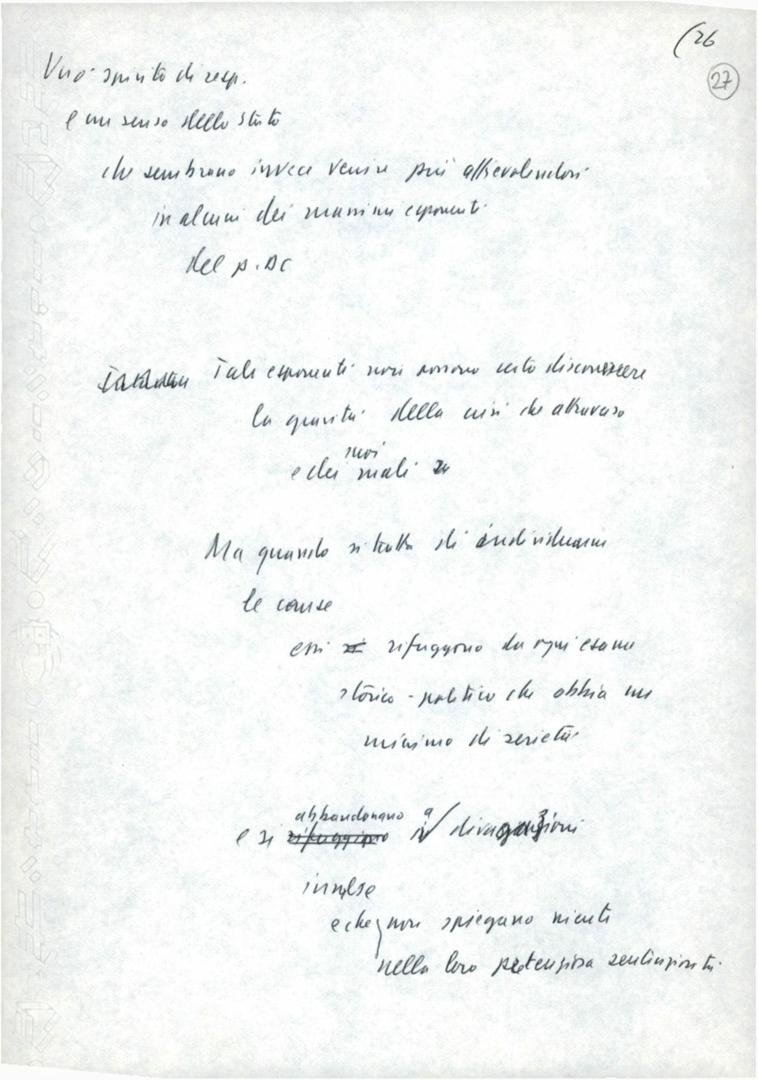 (26
27
Uno spirito di resp.
e un senso dello Stato
che sembrano invece venire più affievolendosi
in alcuni dei massimi esponenti
del p. DC
Tali esponenti non possono certo disconoscere
la gravità della crisi che attraversa
suoi
e dei mali
Ma quando si tratta di individuarne
le cause
essi rifuggono da ogni esame
storico-politico che abbia un
minimo di serietà
abbandonano a
e si rifuggono in divagazioni
insulse
e che non spiegano niente
nella loro pretenziosa